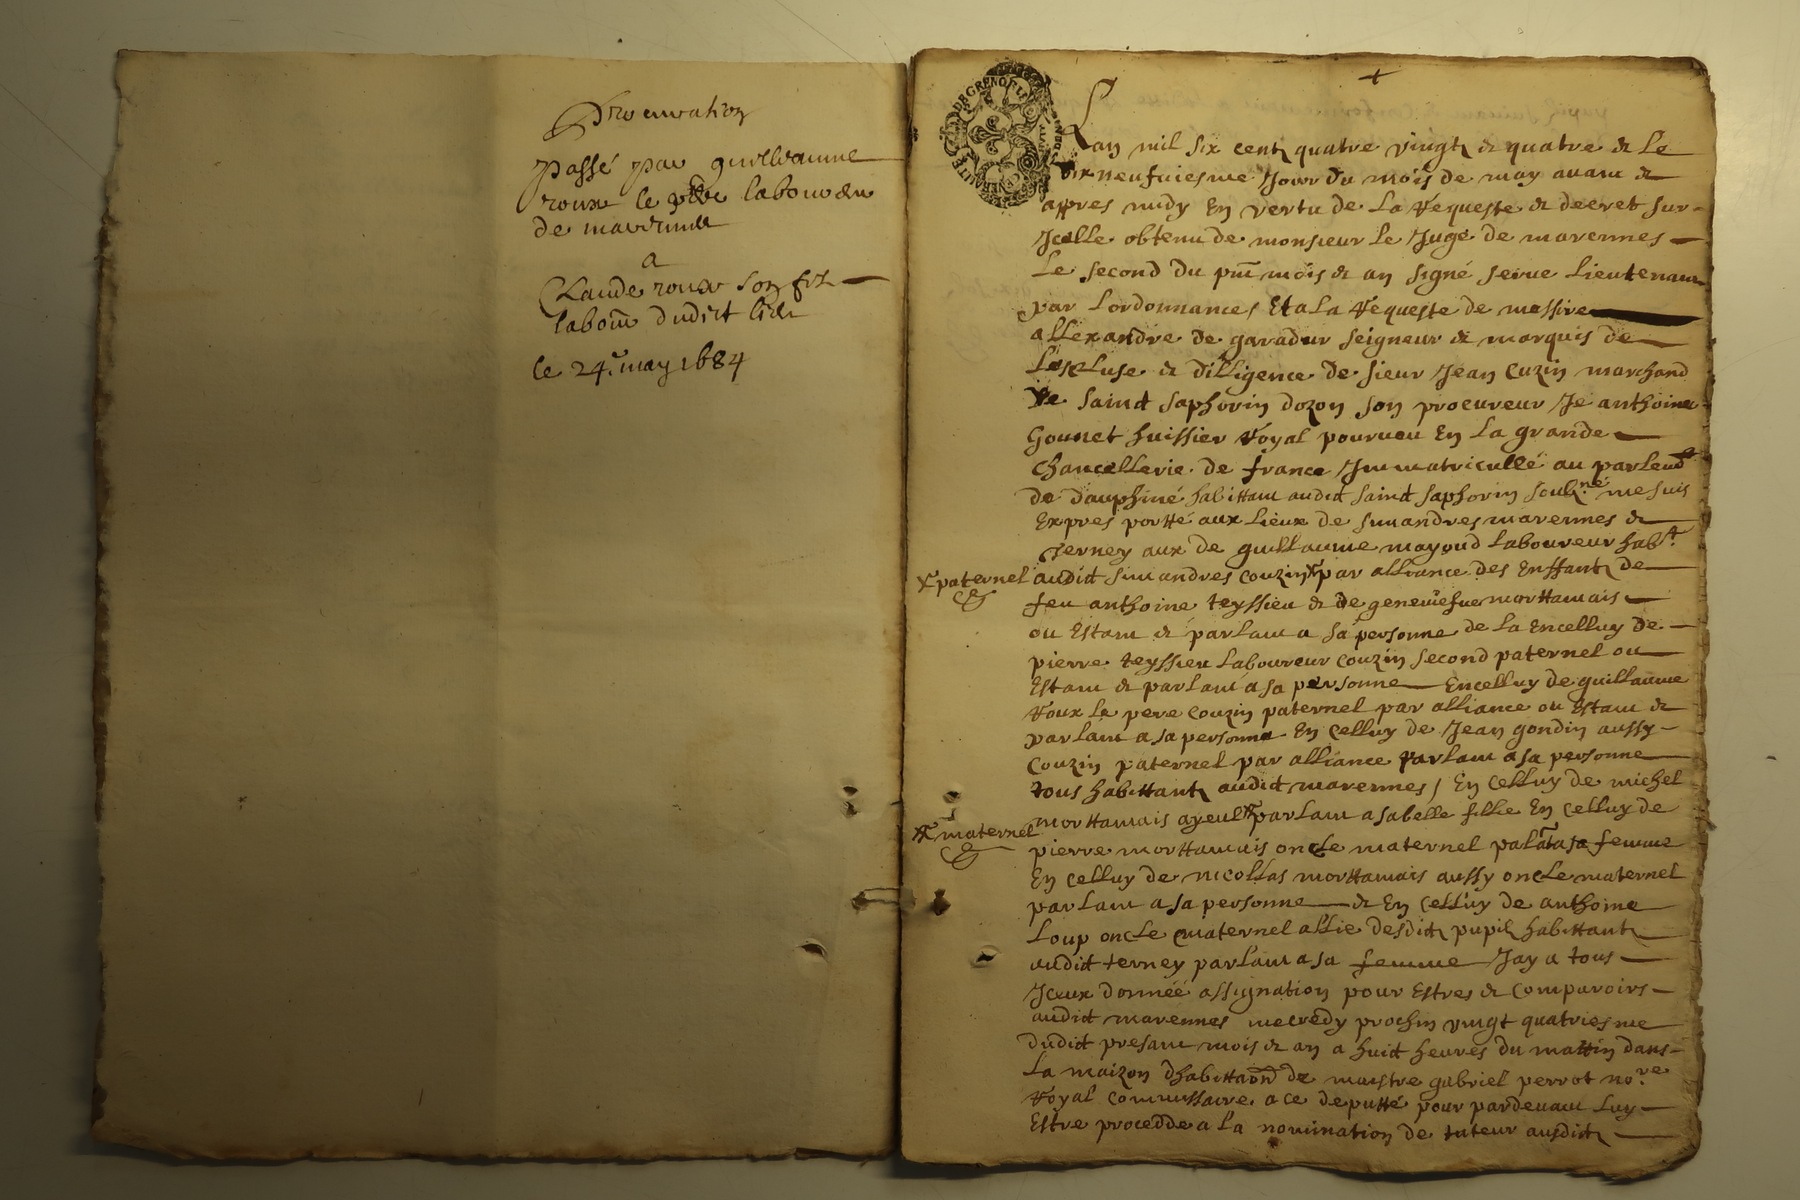 Procuration
passé par guillaume
roux le pere laboureur
de marennes
a
Claude roux son filz
labour dudict lieu
le 24e may 1684
GENERALITE DE GRENOBLE
Lan mil six centz quatre vingtz & quatre & le
dix neufuiesme Jour du mois de may auant &
appres midy En vertu de La Requeste & decret sur
Jcelle obtenu de monsieur Le Juge de marennes
Le second du pnt mois & an signé serue Lieutenant
par Lordonnances Et a La Requeste de messire
allexandre de garadeur seigneur & marquis de
Lescluse & dilligence de sieur Jean Cuzin marchand
de Sainct saphorin dozon son procureur Je anthoine
Gounet huissier Royal pourueu En La grande
Chancellerie de france Jmmatricullé au parlemt
de dauphiné habittant audict Sainct saphorin soubz.né me suis
Expres portté aux Lieux de simandres marennes &
Terney aux de guillaume mayoud Laboureur habt.
x paternel audict simandres couzin x par alliance des Enffantz de
feu anthoine teyssieu & de geneuiefue morttamais
ou Estant & parlant a sa personne de La Encelluy de
pierre teyssieu Laboureur couzin second paternel ou
Estant & parlant a sa personne Encelluy de guillaume
Roux Le pere couzin paternel par alliance ou Estant &
parlant a sa personne En Celluy de Jean gondin aussy
Couzin paternel par alliance Parlant a sa personne
tous habittantz audict marennes / En Celluy de michel
morttamais ayeul xx parlant a sa belle fillie En Celluy de
xx maternel
pierre morttamais oncle maternel palãt a sa femme
En Celluy de nicollas morttamais aussy oncle maternel
parlant a sa personne & En Celluy de anthoine
Loup oncle maternel allie desditz pupilz habittantz
audict terney parlant a sa femme Jay a tous
Jceux donnéé assignation pour Estres & Comparoirs
audict marennes mecredy prochin vingt quatriesme
dudict presant mois & an a huict heures du mattin dans
La maizon dhabittaon de maistre gabriel perrot no.re
Royal Commissaire a ce deputté pour pardeuant Luy
Estre procedde a La nomination de tuteur ausdictz